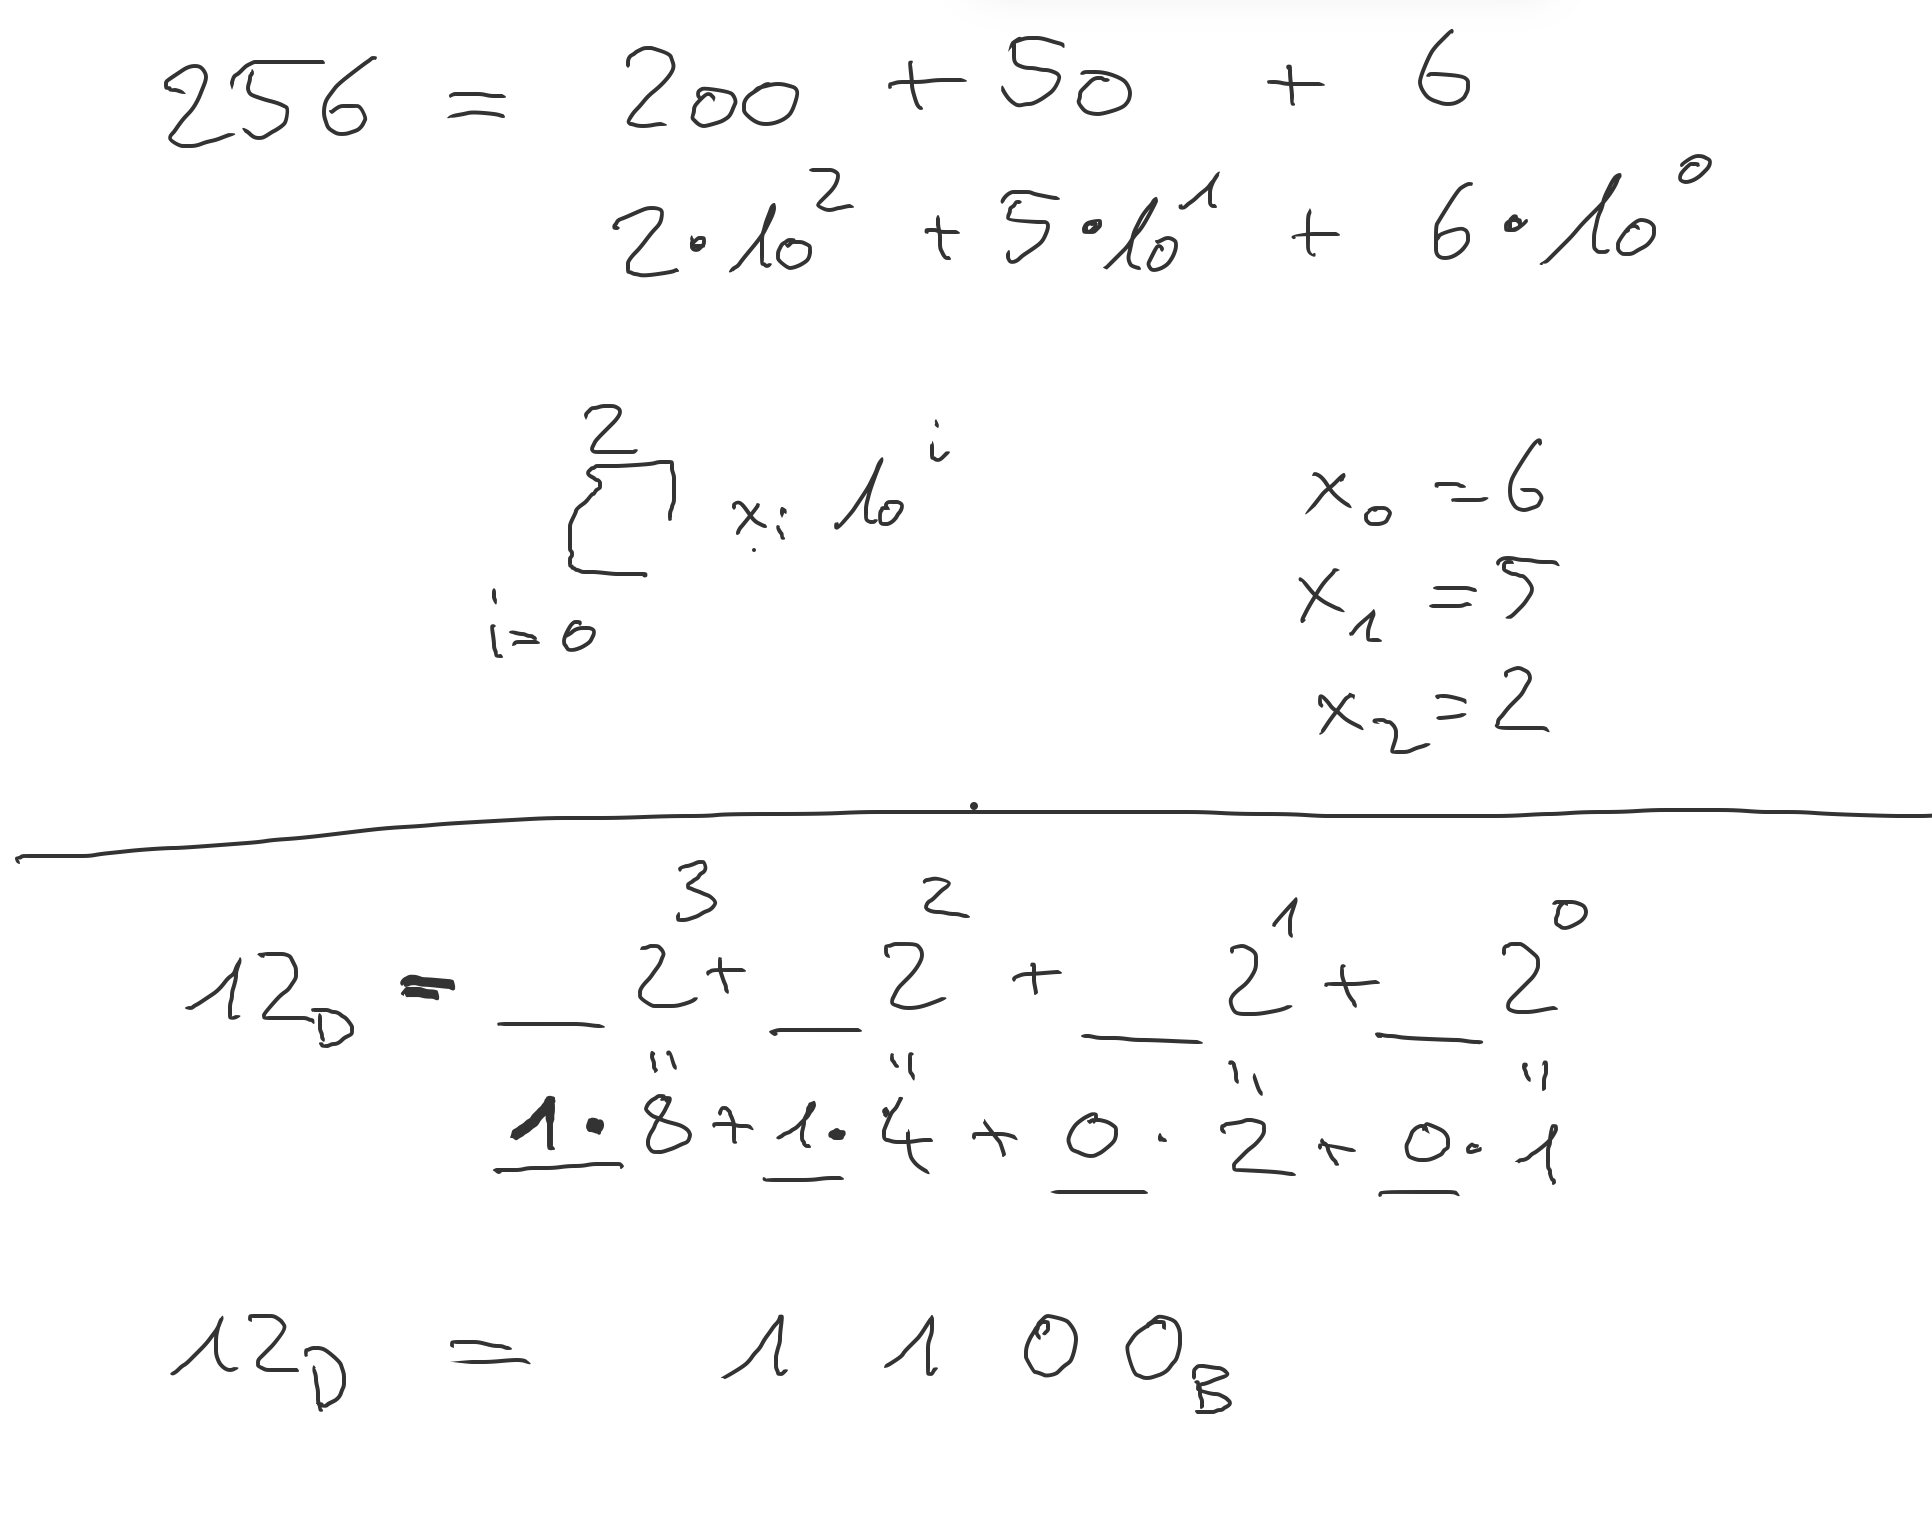 256 = 200 + 50 + 6
2·10² + 5·10¹ + 6·10⁰
2
∑ xᵢ 10ⁱ
i=0
x₀ = 6
x₁ = 5
x₂ = 2
12_D = __ 2³ + __ 2² + __ 2¹ + __ 2⁰
" " " "
1·8 + 1·4 + 0·2 + 0·1
12_D = 1 1 0 0_B